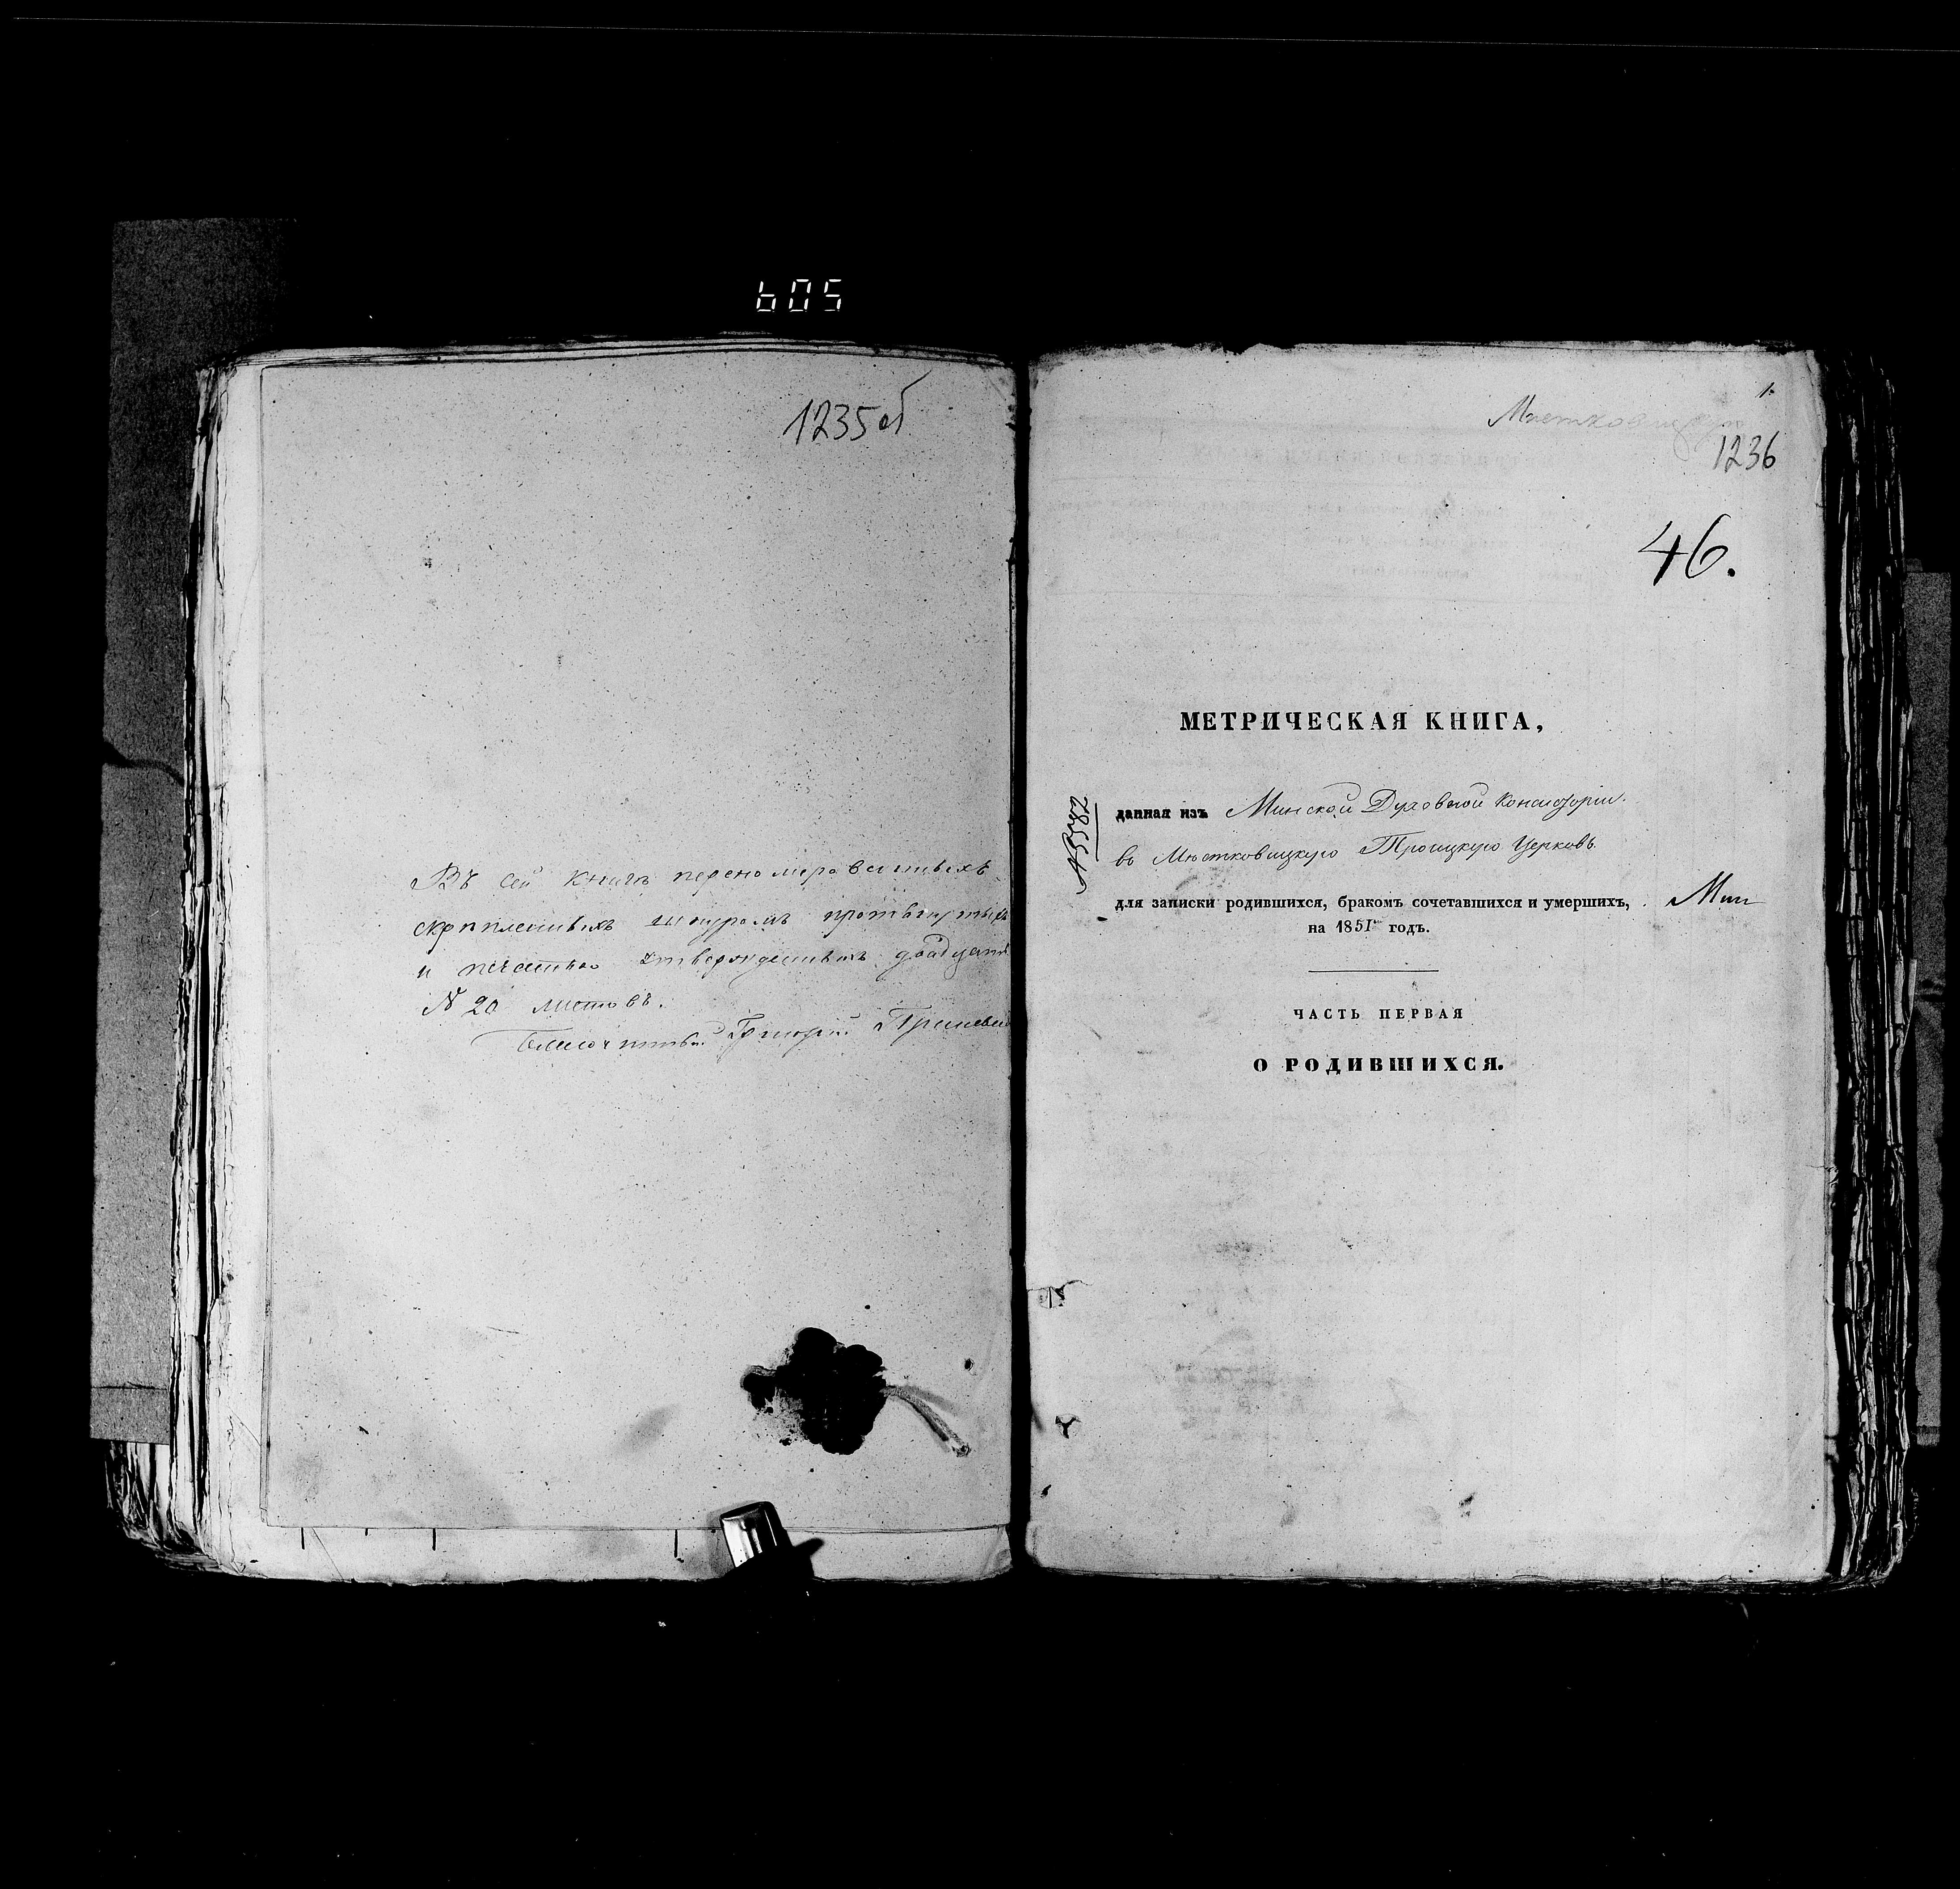 605
1235об
Въ сей книгѣ перенумерованныхъ
скрѣпленныхъ шнуромъ протянутыхъ
и печатью утвержденныхъ двадцать
№ 20 листовъ.
Благочинный Григорій
1.
1236
46.
МЕТРИЧЕСКАЯ КНИГА,
№5582
данная изъ Минской Духовной Консисторіи.
въ Мѣстковицкую Троицкую Церковь
для записки родившихся, бракомъ сочетавшихся и умершихъ, Мин
на 1851й годъ.
ЧАСТЬ ПЕРВАЯ
О РОДИВШИХСЯ.